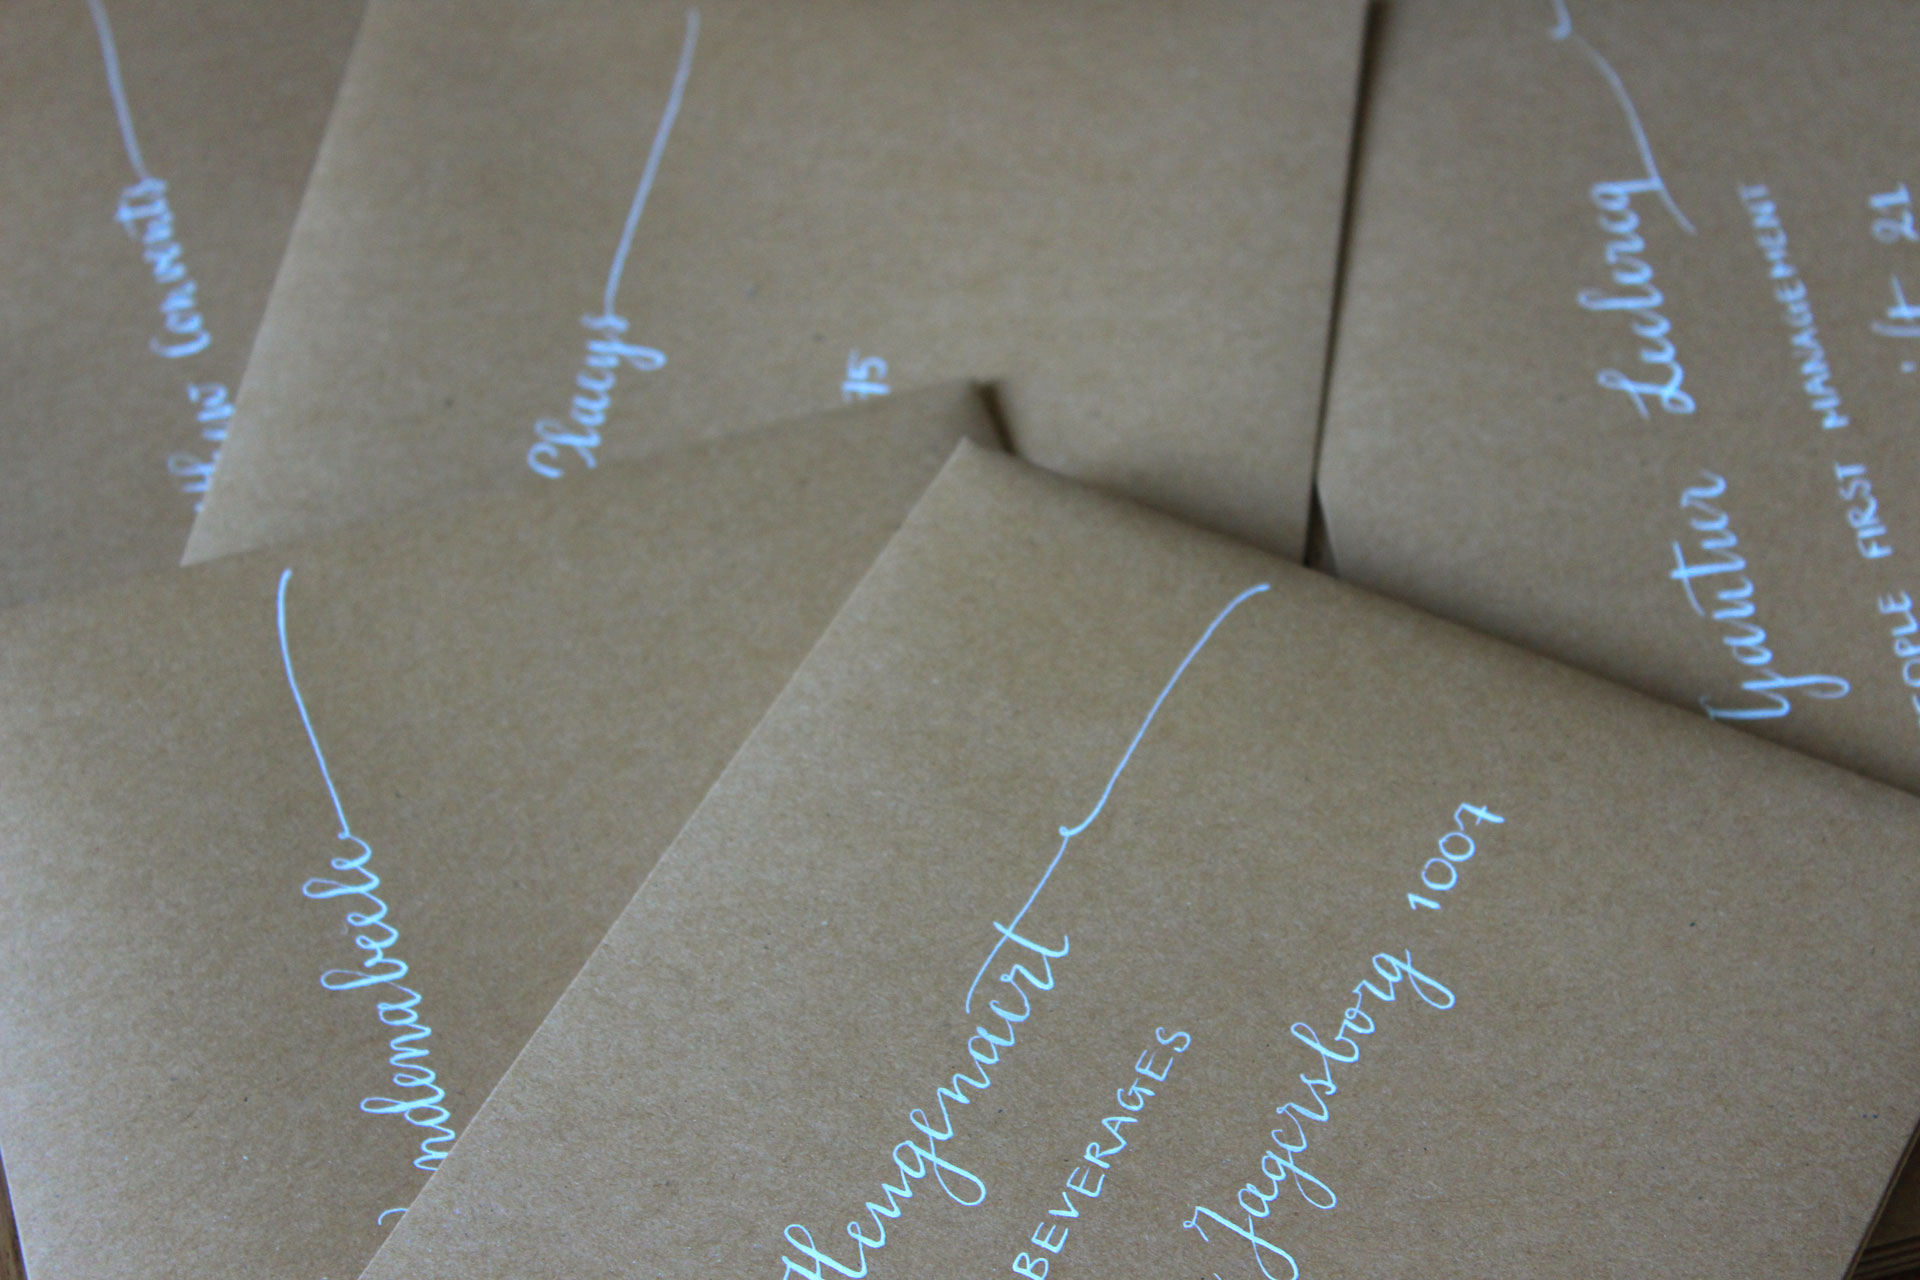 Convents
Placys
75
Gunter Leclercq
PEOPLE FIRST MANAGEMENT
21
ndenabeele
Hengenaert
BEVERAGES
Jagersborg 1007